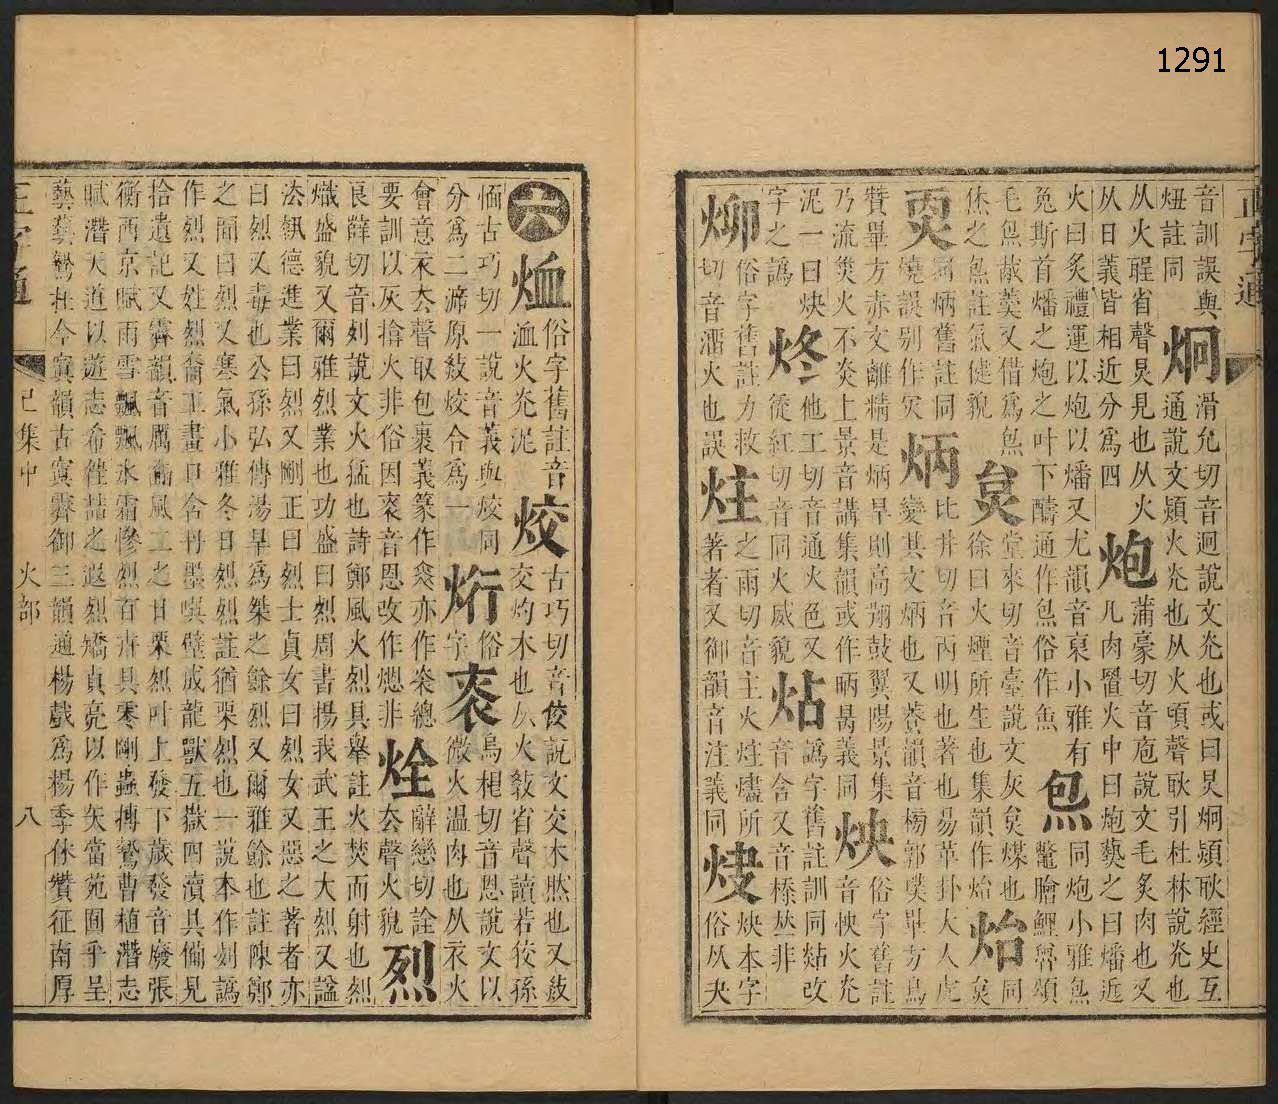 1291
正字通
音訓誤與
炯
滑允切音迥說文光也或曰炅炯熲耿經史互
炷註同
通說文熲火光也从火頃聲耿引杜林說光也
从火聖省聲炅見也从火
从日義皆相近分爲四
炮
蒲豪切音庖說文毛炙肉也又
凡肉置火中曰炮藝之曰燔近
火曰炙禮運以炮以燔又尤韻音裒小雅有
兔斯首燔之炮之叶下醻通作炰俗作魚
炰
同炮小雅炰
鼈膾鯉魯頌
毛炰胾羹又借爲炰
烋之炰註氣健貌
炱
堂來切音臺說文灰炱煤也
徐曰火煙所生也集韻作炲
炲
同
炱
䎡
同炳舊註同
燒誤別作灾
炳
比井切音丙明也著也易革卦大人虎
變其文炳也又養韻音
畢方鳥
贊畢方赤文離精是炳旱則高翔鼓翼陽景集
乃流災火不炎上景音講集韻或作昞昺義同
炴
俗字舊註
音怏火光
泥一曰炴他工切音通火色又
字之譌
炵
徒紅切音同火威貌
炶
譌字舊註訓同㶣改
音含又音㮇𠀤非
炴本字
俗字舊註力救
切音溜火也誤
炷
之雨切音主火炷燼所
著者又御韻音注義同
㶼
俗从夬
六
洫火光泥
俗字舊註音
恤古巧切一說音義與烄同
烄
古巧切音佼說文交木然也又敍
交灼木也从火敎省聲讀若狡孫
分爲二濟原敍烄令爲一
烆
俗
字
衮
烏根切音恩說文以
微火温肉也从衣火
會意衣去聲取包裹義篆作裒亦作㷇總
要訓以灰掩火非俗因衮音恩改作煾非
烇
去聲火貌
辭戀切詮
烈
良薛切音列說文火猛也詩鄭風火烈具舉註火焚而射也烈
熾盛貌又爾雅烈業也功盛曰烈周書揚我武王之大烈又謚
法執德進業曰烈又剛正曰烈士貞女曰烈女又惡之著者亦
曰烈又毒也公孫弘傳湯旱爲桀之餘烈又爾雅餘也註陳鄭
之間曰烈又寒氣小雅冬日烈烈註猶栗烈也一說本作冽譌
作烈又姓烈裔工畫口含丹墨噀壁成龍獸五嶽四瀆具備見
拾遺記又霽韻音厲豳風二之日栗烈叶上發下歲發音廢張
衡西京賦雨雪飄飄水霜慘烈百卉具零剛蟲搏鷙曹植潛志
賦潛大道以遊志希往喆之遐烈矯貞亮以作矢當苑囿乎呈
藝藝鷙在今寘韻古寘霽御三韻通楊戲爲楊季休贊征南厚
正字通
巳集中
火部
八